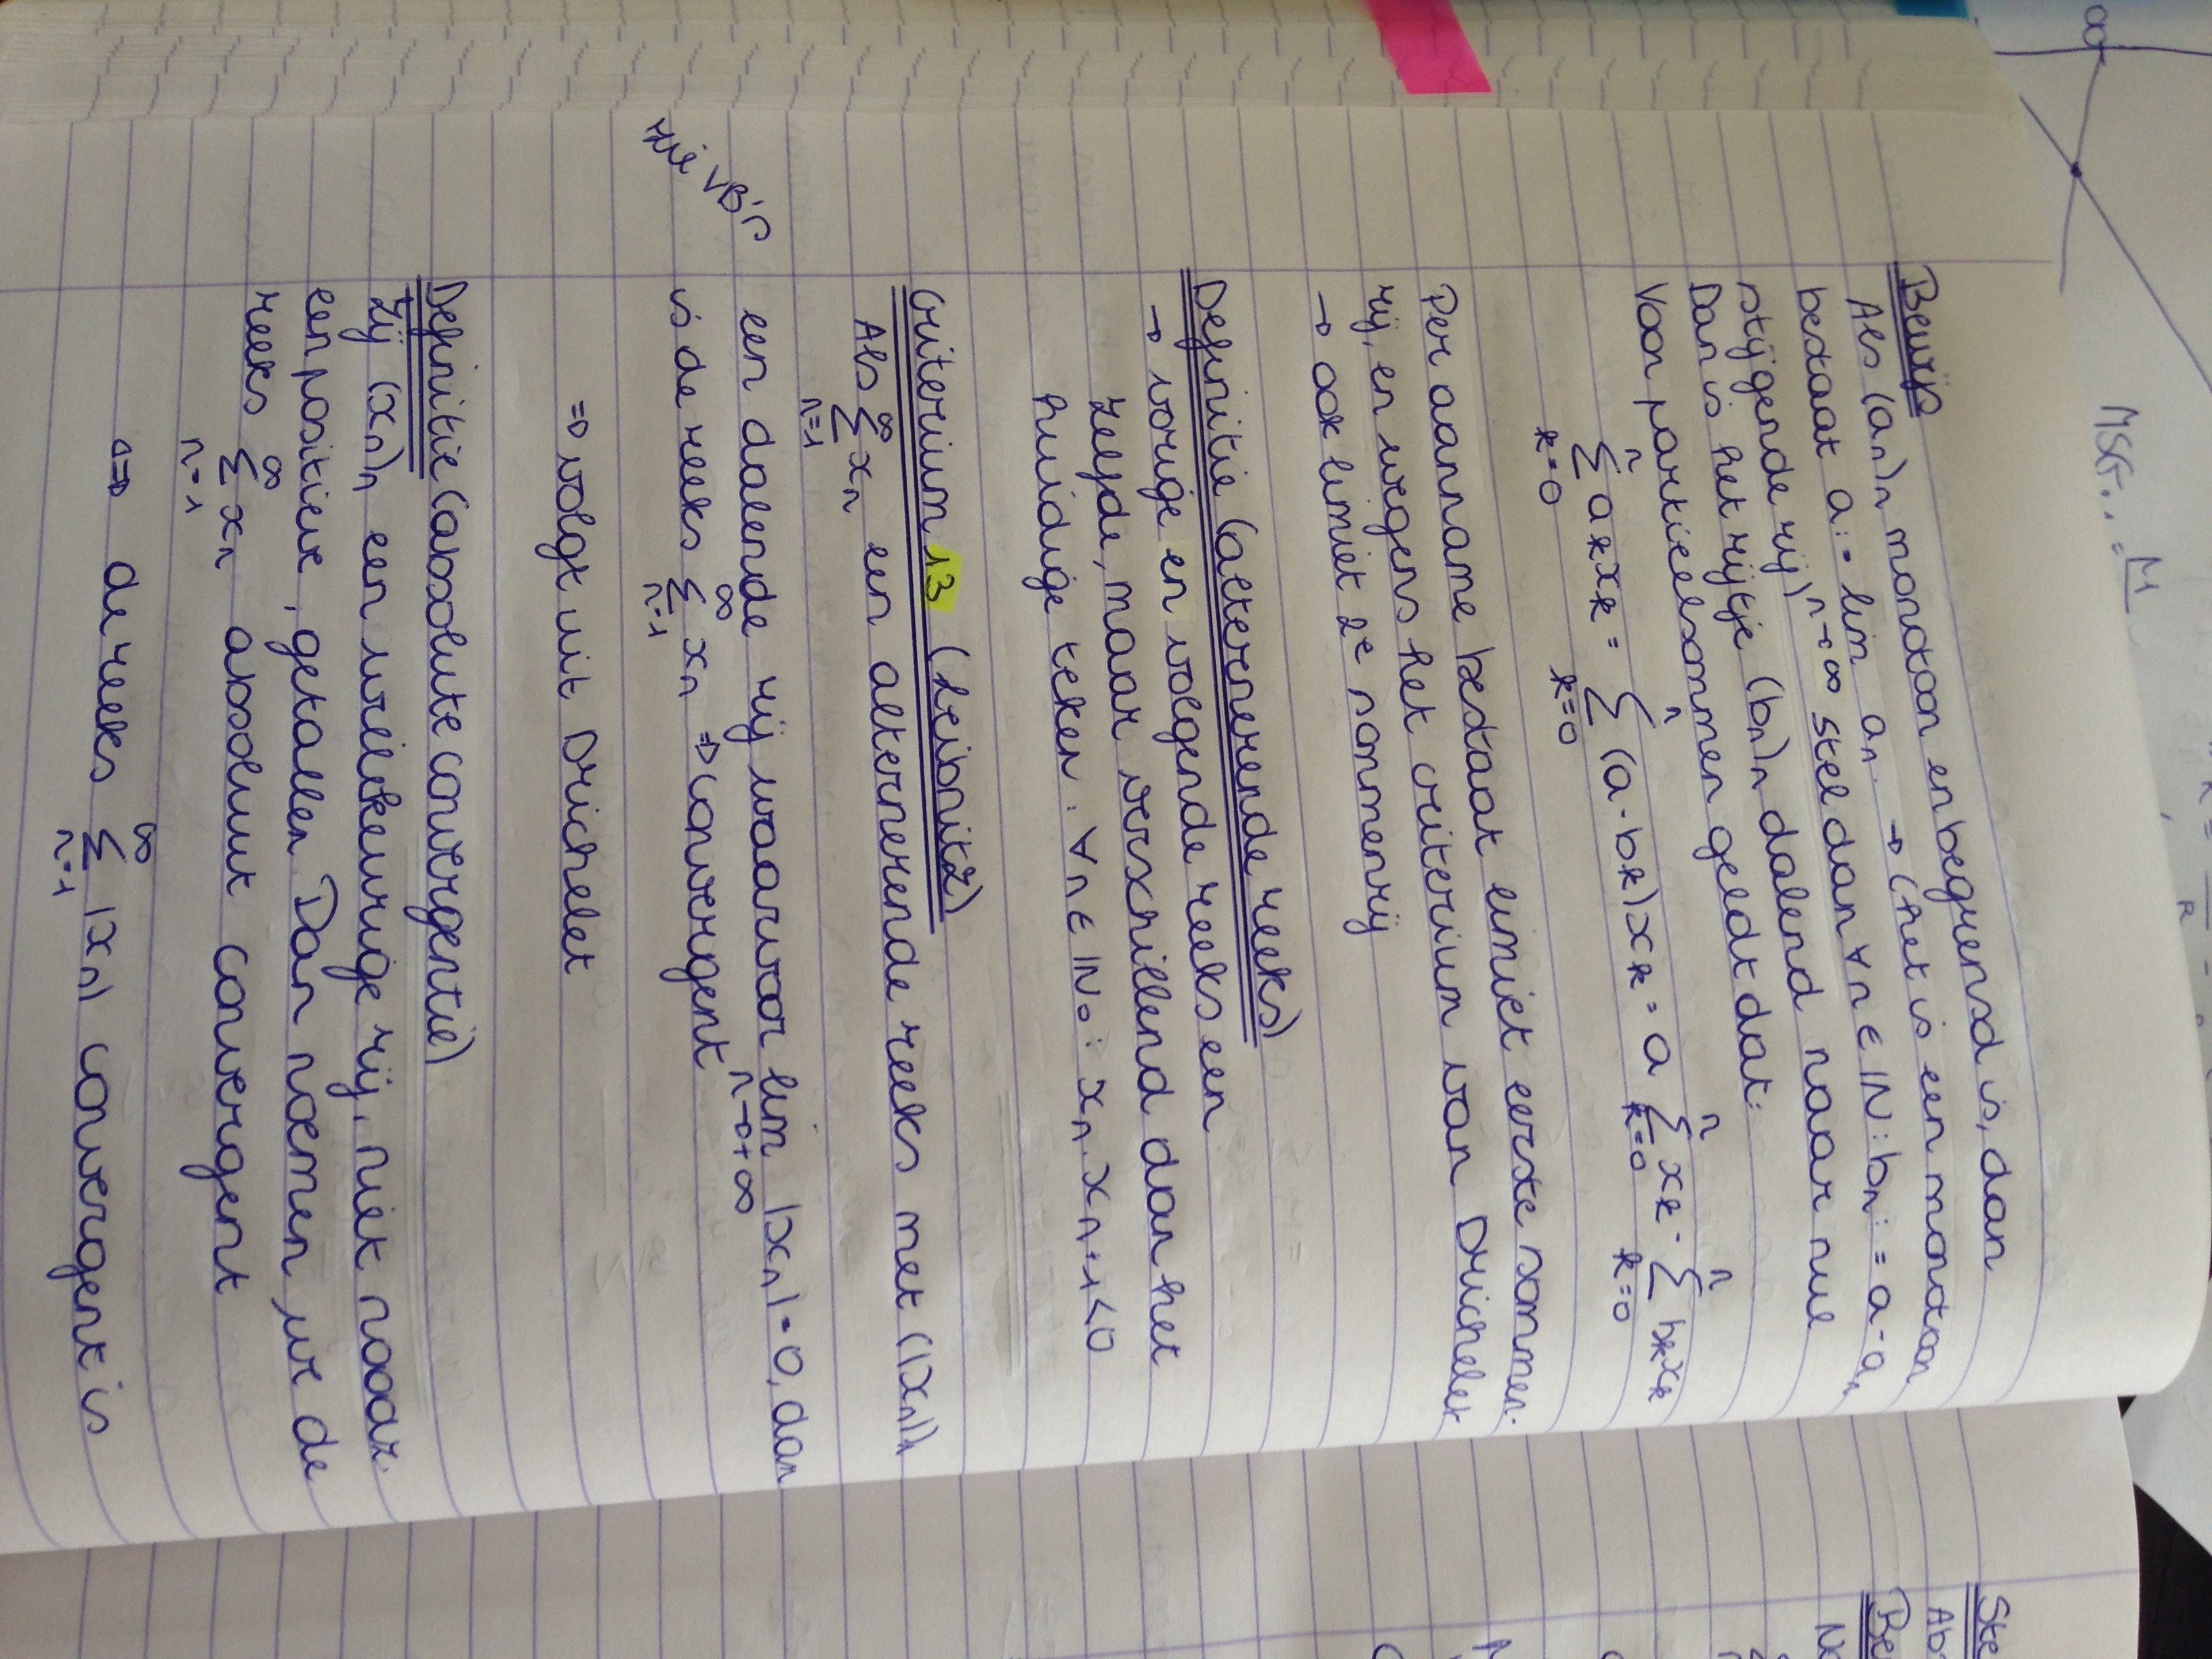 Bewijs
Als (aₙ)ₙ monotoon en begrensd is, dan
bestaat a := lim aₙ. → (het is een monotoon
n→∞
stijgende rij) stel dan ∀n ∈ ℕ: bₙ := a - aₙ
Dan is het rijtje (bₙ)ₙ dalend naar nul
Voor partieelsommen geldt dat:
n n n n
∑ aₖxₖ = ∑ (a - bₖ)xₖ = a ∑ xₖ - ∑ bₖxₖ
k=0 k=0 k=0 k=0
Per aanname bestaat limiet eerste sommen-
rij, en wegens het criterium van Drichelet
→ ook limiet 2e sommenrij
Definitie (alternerende reeks)
→ vorige en volgende reeks een
zelfde, maar verschillend dan het
huidige teken: ∀n ∈ ℕ₀: xₙ.xₙ₊₁<0
Criterium 13 (Leibnitz)
∞
Als ∑ xₙ een alternerende reeks met (|xₙ|)ₙ
n=1
een dalende rij waarvoor lim |xₙ| = 0, dan
n→+∞
∞
is de reeks ∑ xₙ ⇒ convergent
n=1
zie VB'n
⇒ volgt uit Drichelet
Definitie (absolute convergentie)
Zij (xₙ)ₙ een willekeurige rij, niet nood.
een positieve, getallen. Dan noemen we de
∞
reeks ∑ xₙ absoluut convergent
n=1
∞
⇔ de reeks ∑ |xₙ| convergent is
n=1
Ste
Ab
Be